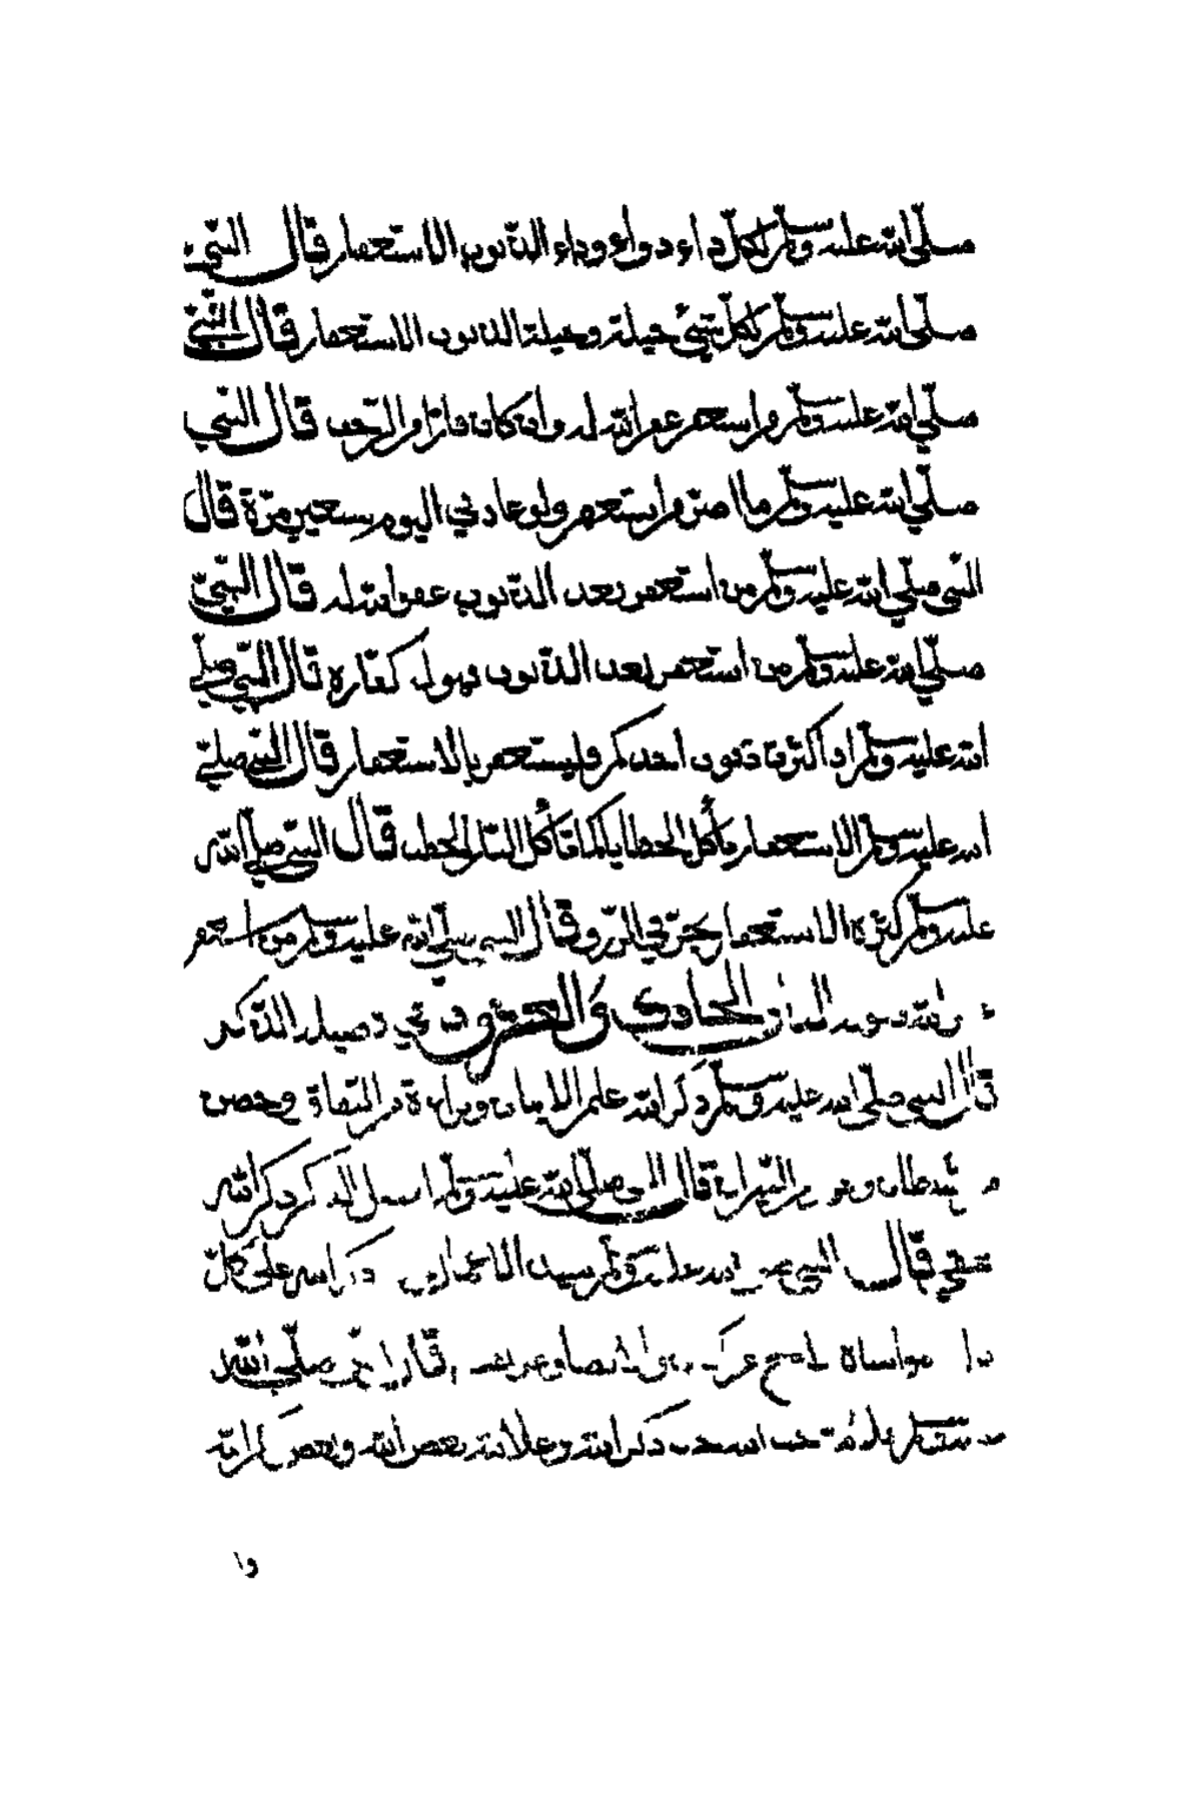 صلّى الله عليه وسلّم لكلّ داء دواء ودواء الذنوب الاستغفار قال النبيّ
صلّى الله عليه وسلّم لكلّ شيء حيلة وحيلة الذنوب الاستغفار قال النبيّ
صلّى الله عليه وسلّم من استغفر غفر الله له وان كان فارّا من الزحف قال النبي
صلّى الله عليه وسلّم ما اصرّ من استغفر ولو عاد في اليوم سبعين مرّة قال
النبي صلّى الله عليه وسلّم من استغفر بعد الذنوب غفر الله له قال النبيّ
صلّى الله عليه وسلّم من استغفر بعد الذنوب فهو له كفّارة قال النبي صلّى
الله عليه وسلّم اذا كثرت ذنوب احدكم فليستغفر بالاستغفار قال النبي صلّى
الله عليه وسلّم الاستغفار يأكل الخطايا كما تأكل النّار الحطب قال النبي صلّى الله
عليه وسلّم كثرة الاستغفار يجرّ في الرزق وقال النبي صلّى الله عليه وسلّم من استغفر
الله الحادي والعشرون في فضيلة الذّكر
قال النبي صلّى الله عليه وسلّم ذكر الله علم الايمان وبراءة من النفاق وحصن
من الشيطان وحرز من النيران قال النبي صلّى الله عليه وسلّم افضل الذكر ذكر الله
قال النبي صلى الله عليه وسلّم سيد الاعمال ذكر الله على كلّ
مواساة الاخ صلّى الله
حب الله حب ذكر الله وعلامة بغض الله وبغض ذكر الله
وا